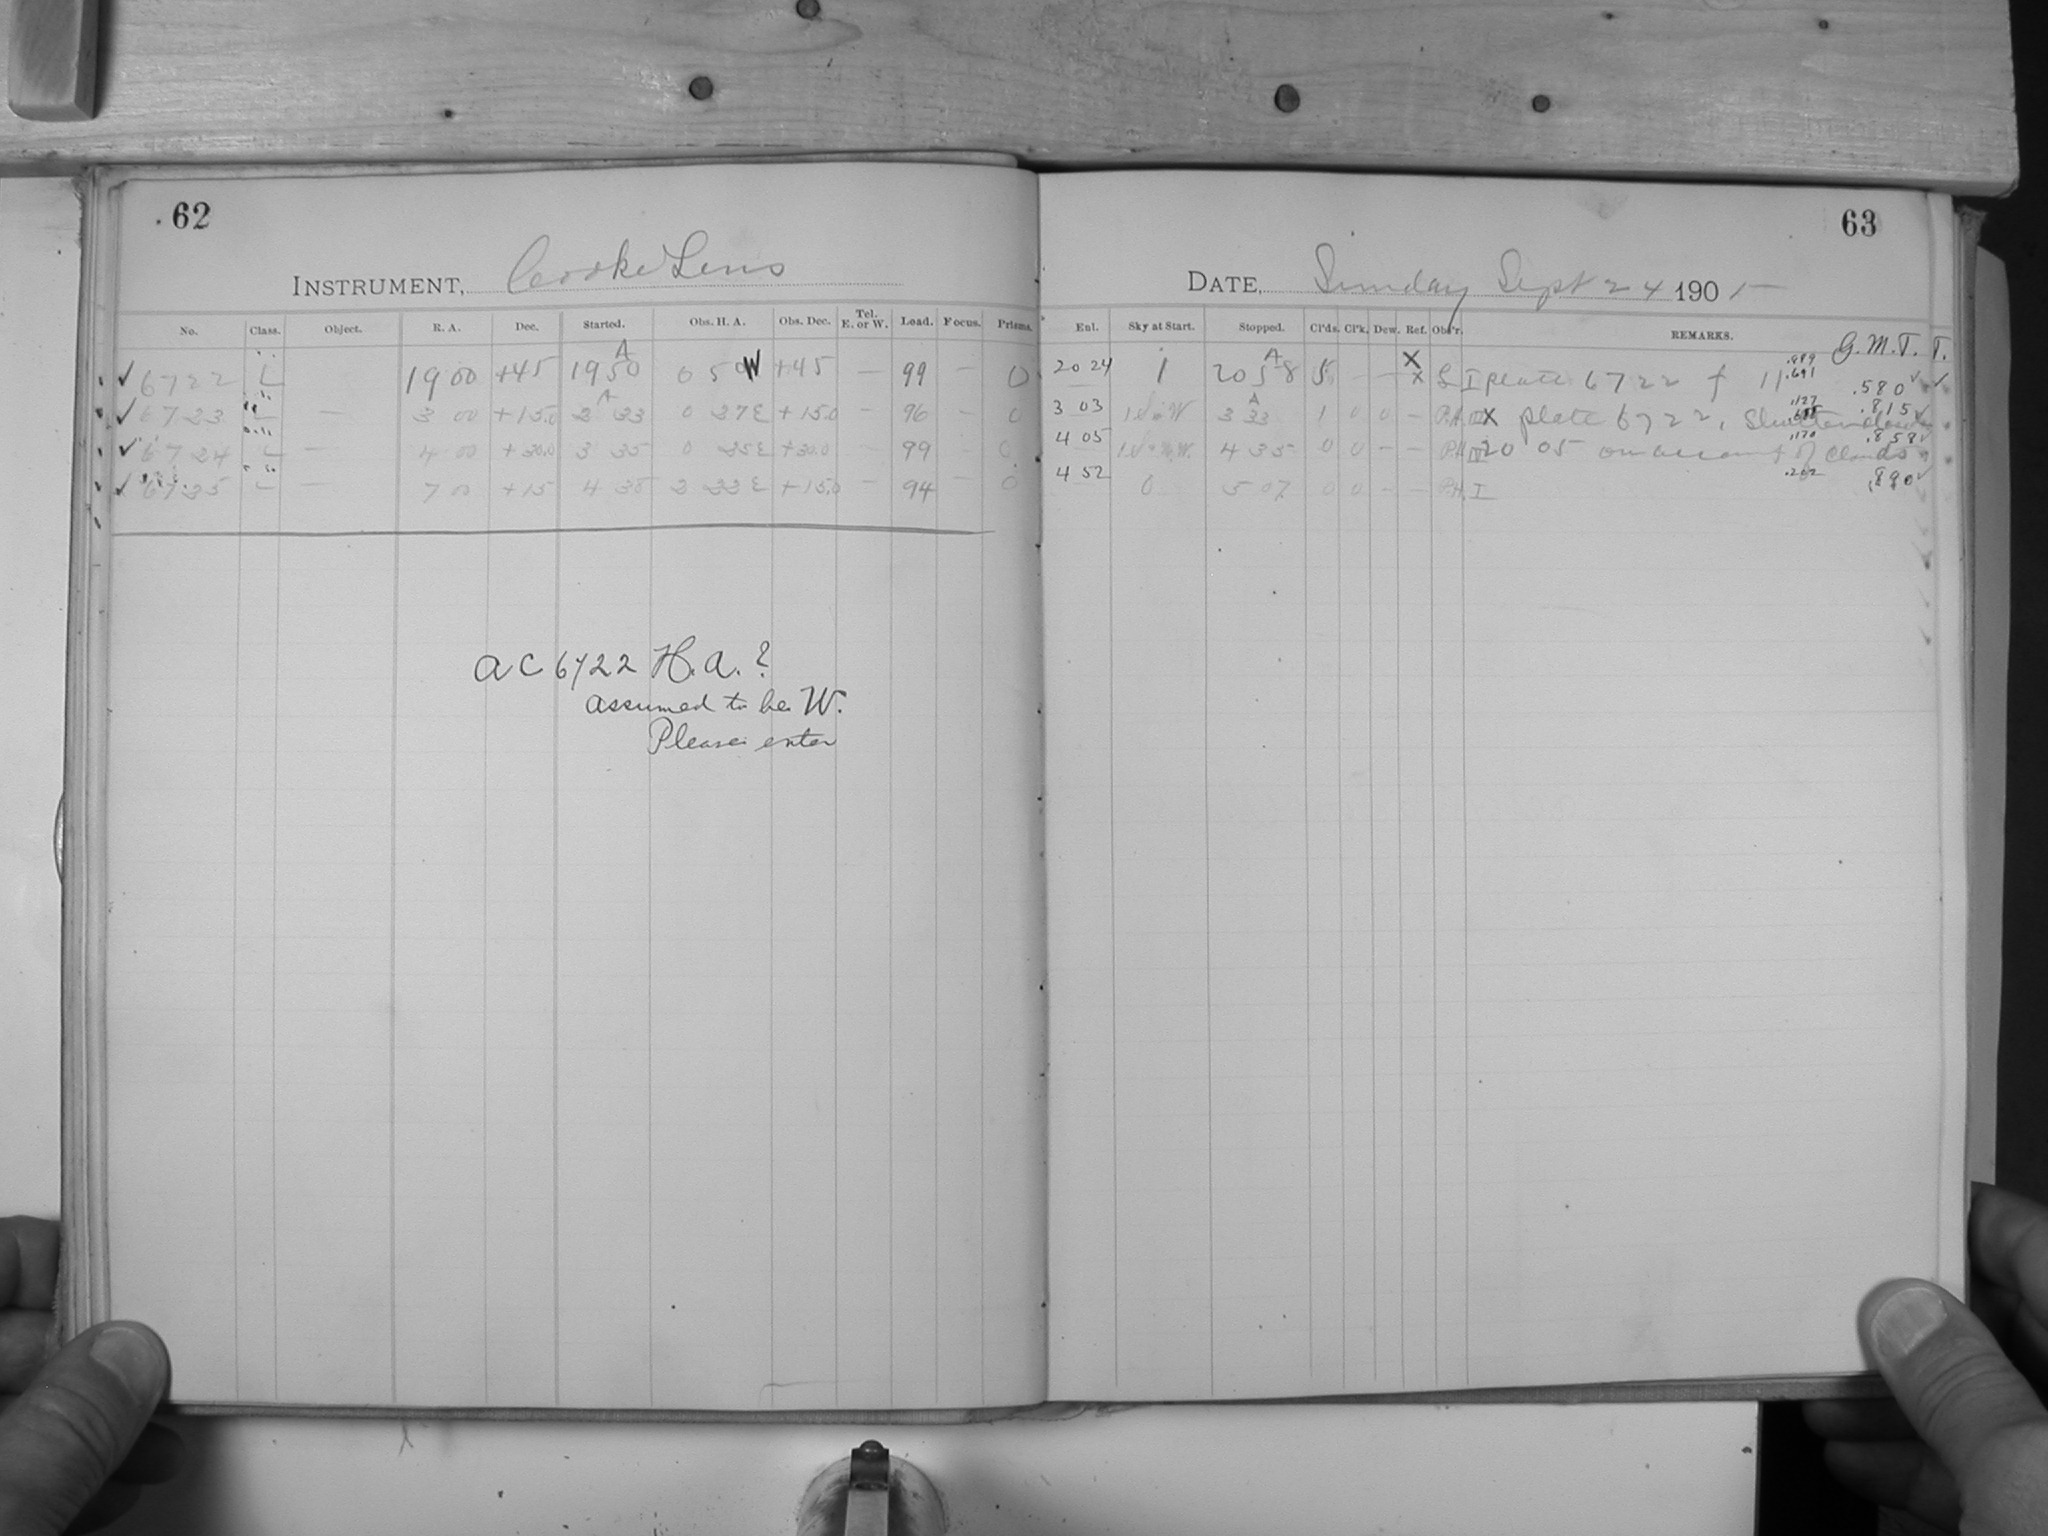 62
INSTRUMENT, Cooke Lens
No. Class. Object. R. A. Dec. Started. Obs. H. A. Obs. Dec. Tel. E. or W. Load. Focus. Prisms.
✓ 6722 L 19 00 +45 19 50 A 0 50 W +45 — 99 — 0
✓ 6723 L — 3 00 +15.0 2 33 A 0 27 E +15.0 — 96 — 0
✓ 6724 L — 4 00 +30.0 3 35 0 25 E +30.0 — 99 — 0
✓ 6725 L — 7 00 +15 4 38 2 22 E +15.0 — 94 — 0
AC 6722 H.A.?
assumed to be W.
Please enter
63
DATE, Sunday Sept 24 1905
Enl. Sky at Start. Stopped. Cl'ds. Cl'k. Dew. Ref. Obs'r. REMARKS. G.M.T. T.
20 24 1 20 58 A 5 — — X x S I plate 6722 f 11 .989 .691 .580 ✓ ✓
3 03 3 33 A 1 0 0 — X plate 6722, Shutter closed .127 .815 ✓
4 05 4 35 0 0 — — 20 05 on account of clouds .170 .858 ✓
4 52 0 5 07 0 0 — — I .202 .890 ✓